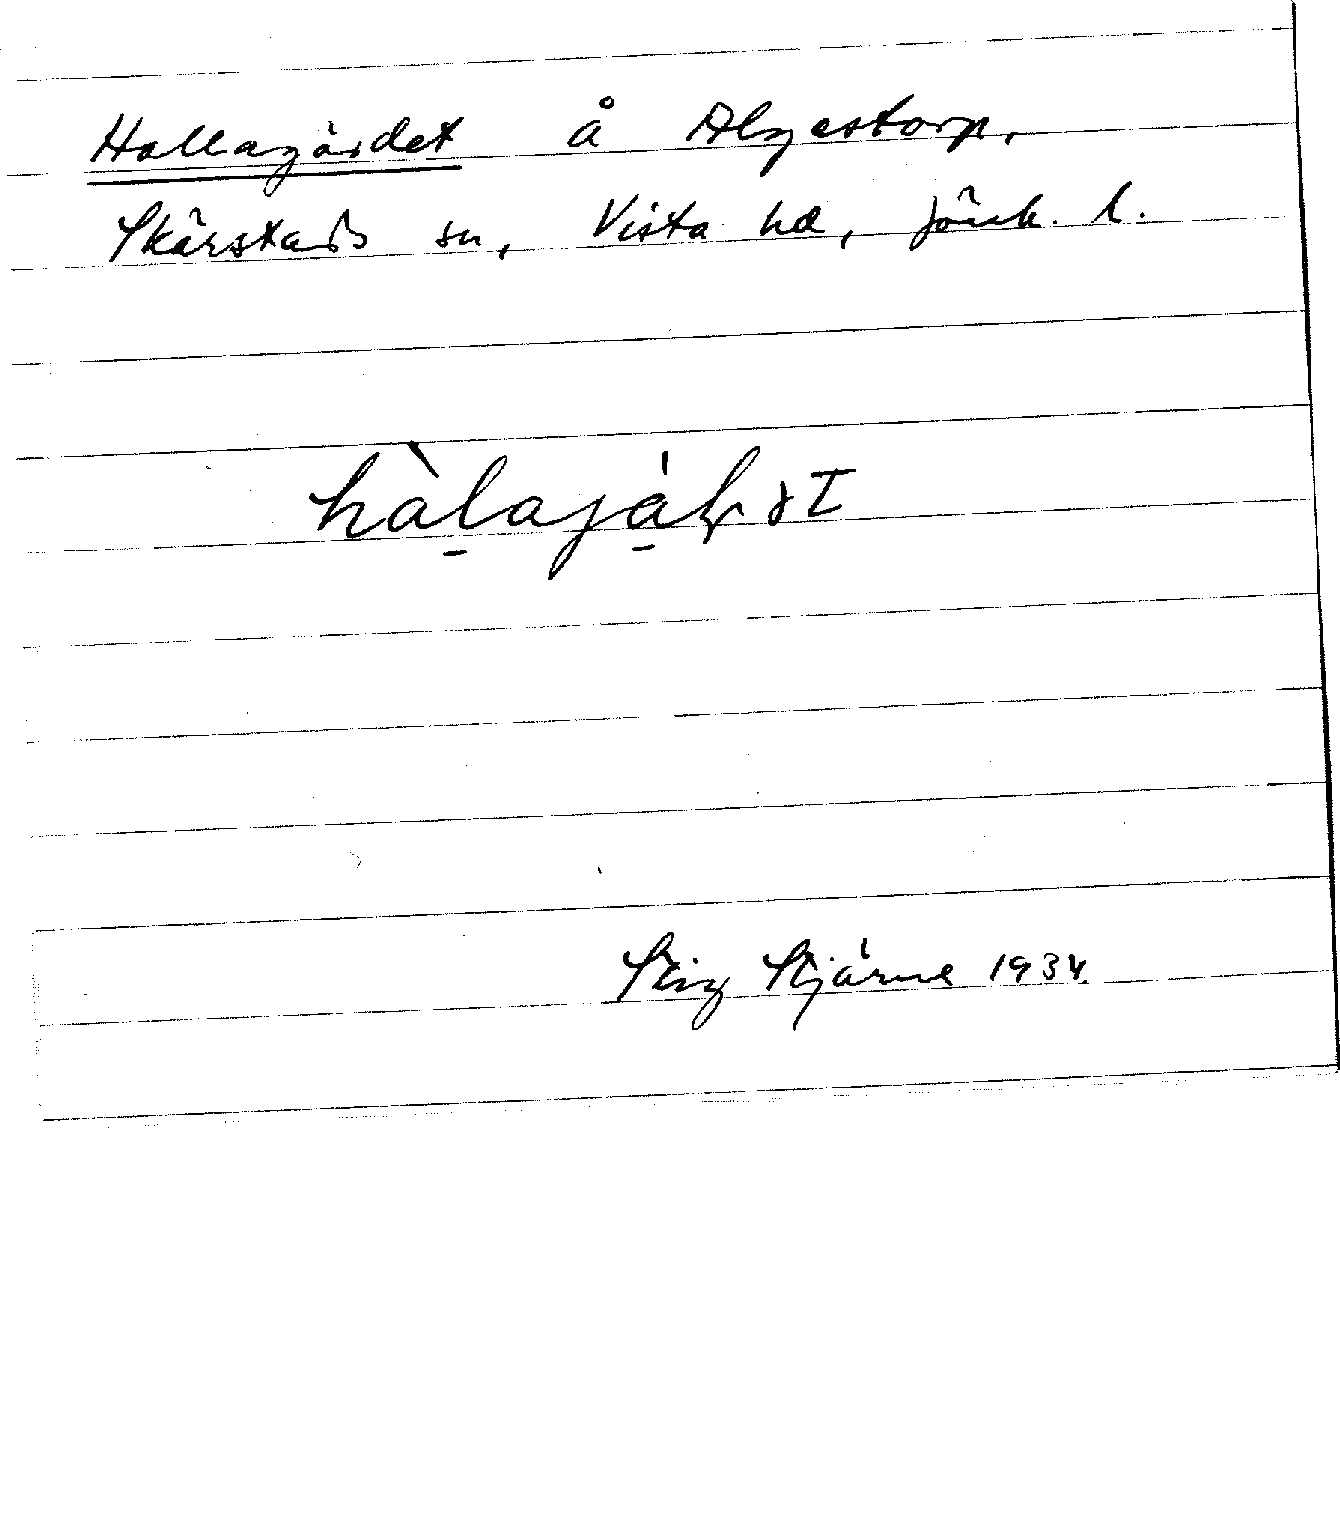 Hallagärdet å Algestorp,
Skärstads sn, Vista hd, Jönk. l.
Stig Stjärne 1934.